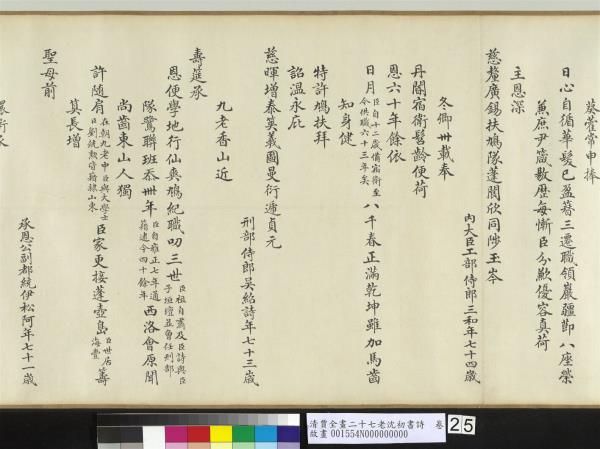 葵藿常申捧
日心自循華髮已盈簪三遷職領嚴疆節八座榮
兼庶尹箴歇歷每慚臣分歉優容真荷
主恩深
慈釐廣錫扶鳩隊蓬閬欣同陟玉岑
內大臣工部侍郎三和年七十四歲
冬卿卅載奉
丹闕宿衛髫齡便荷
恩六十年餘依
日月臣自十二歲備宿衛至今供職六十三年矣八千春正滿乾坤雖加馬齒
知身健
特許鳩扶拜
詔溫永庇
慈暉增泰筴義圖曼衍遁貞元
刑部侍郎吳紹詩年七十三歲
九老香山近
壽筵承
恩便學地行仙爽鳩紀職叨三世臣祖自肅及臣詩與臣子垣壇並曾任刑部
隊鷺聯班忝卅年臣自雍正七年通籍逮今四十餘年西洛會原開
尚齒東山人獨
許隨肩在朝九老中臣與大學士臣劉統勲皆籍隸山東臣家更接蓬壺島臣世居海豐籌
筴長增
聖母前
承恩公副都統伊松阿年七十一歲
清 賈全畫二十七老沈初書詩 卷
故畫 001554N000000000
25